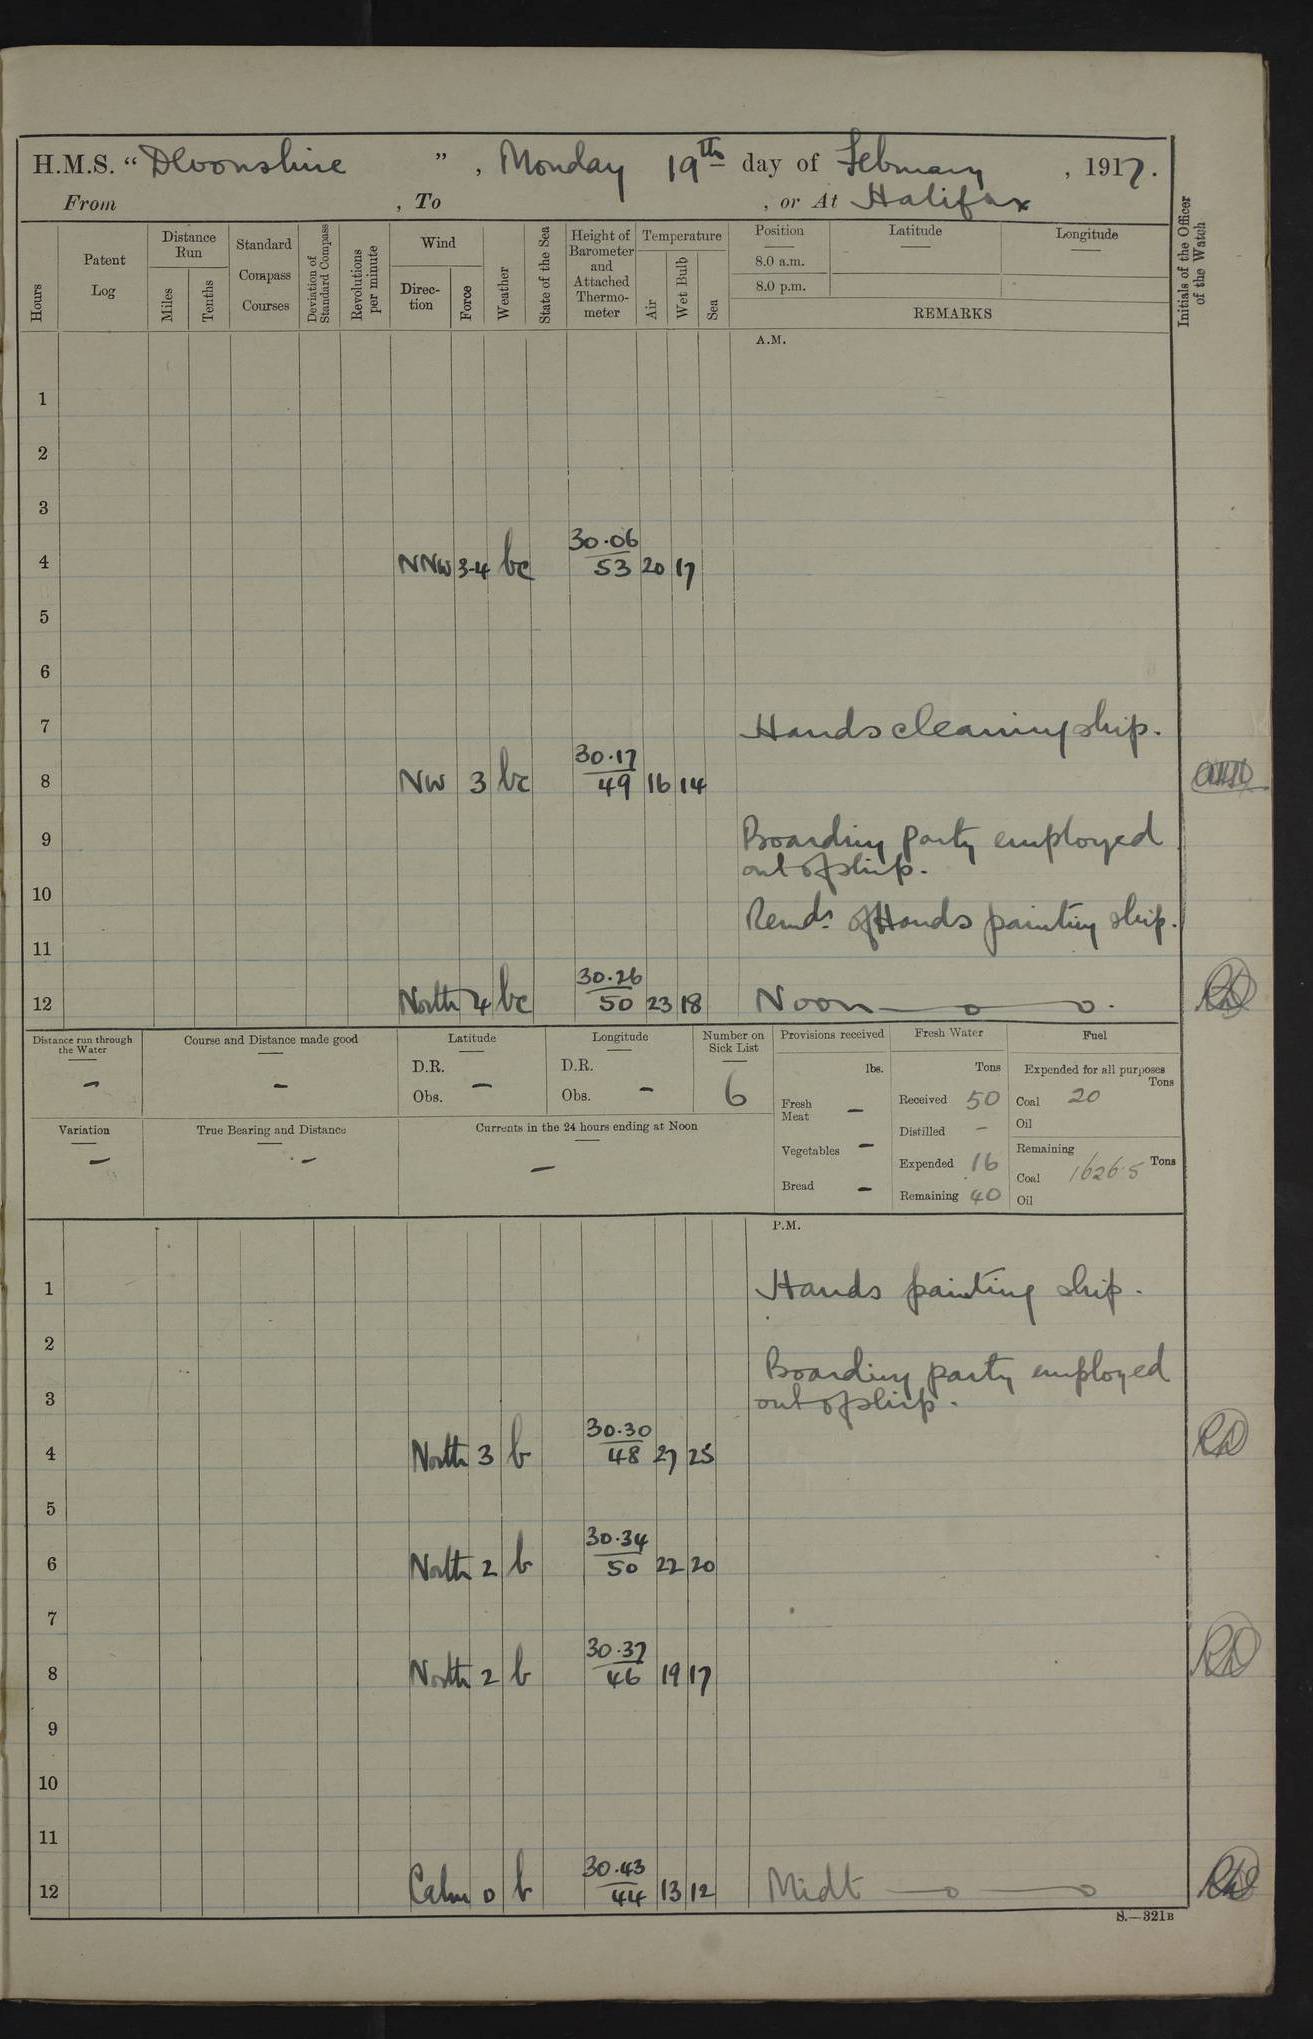 H.M.S. “ Devonshire ” , Monday 19th day of February , 1917.
From , To , or At Halifax
Hours
Patent Log
Distance Run
Miles
Tenths
Standard Compass Courses
Deviation of Standard Compass
Revolutions per minute
Wind
Direc-tion
Force
Weather
State of the Sea
Height of Barometer and Attached Thermo-meter
Temperature
Air
Wet Bulb
Sea
Position
8.0 a.m.
8.0 p.m.
Latitude
Longitude
REMARKS
Initials of the Officer of the Watch
A.M.
1
2
3
4 NNW 3-4 bc 30.06 53 20 17
5
6
7 Hands cleaning ship.
8 NW 3 bc 30.17 49 16 14
9 Boarding party employed
out of ship.
10
Remdr of Hands painting ship.
11
12 North 4 bc 30.26 50 23 18 Noon
Distance run through the Water
–
Course and Distance made good
–
Latitude
D.R.
Obs. –
Longitude
D.R.
Obs. –
Number on Sick List
6
Provisions received
lbs.
Fresh Meat –
Vegetables –
Bread –
Fresh Water
Tons
Received 50
Distilled –
Expended 16
Remaining 40
Fuel
Expended for all purposes
Tons
Coal 20
Oil
Remaining
Coal 1626.5 Tons
Oil
Variation
–
True Bearing and Distance
–
Currents in the 24 hours ending at Noon
–
P.M.
1 Hands painting ship.
2
Boarding party employed
3 out of ship.
4 North 3 b 30.30 48 27 25
5
6 North 2 b 30.34 50 22 20
7
8 North 2 b 30.37 46 19 17
9
10
11
12 Calm 0 b 30.43 44 13 12 Midt
S.—321B